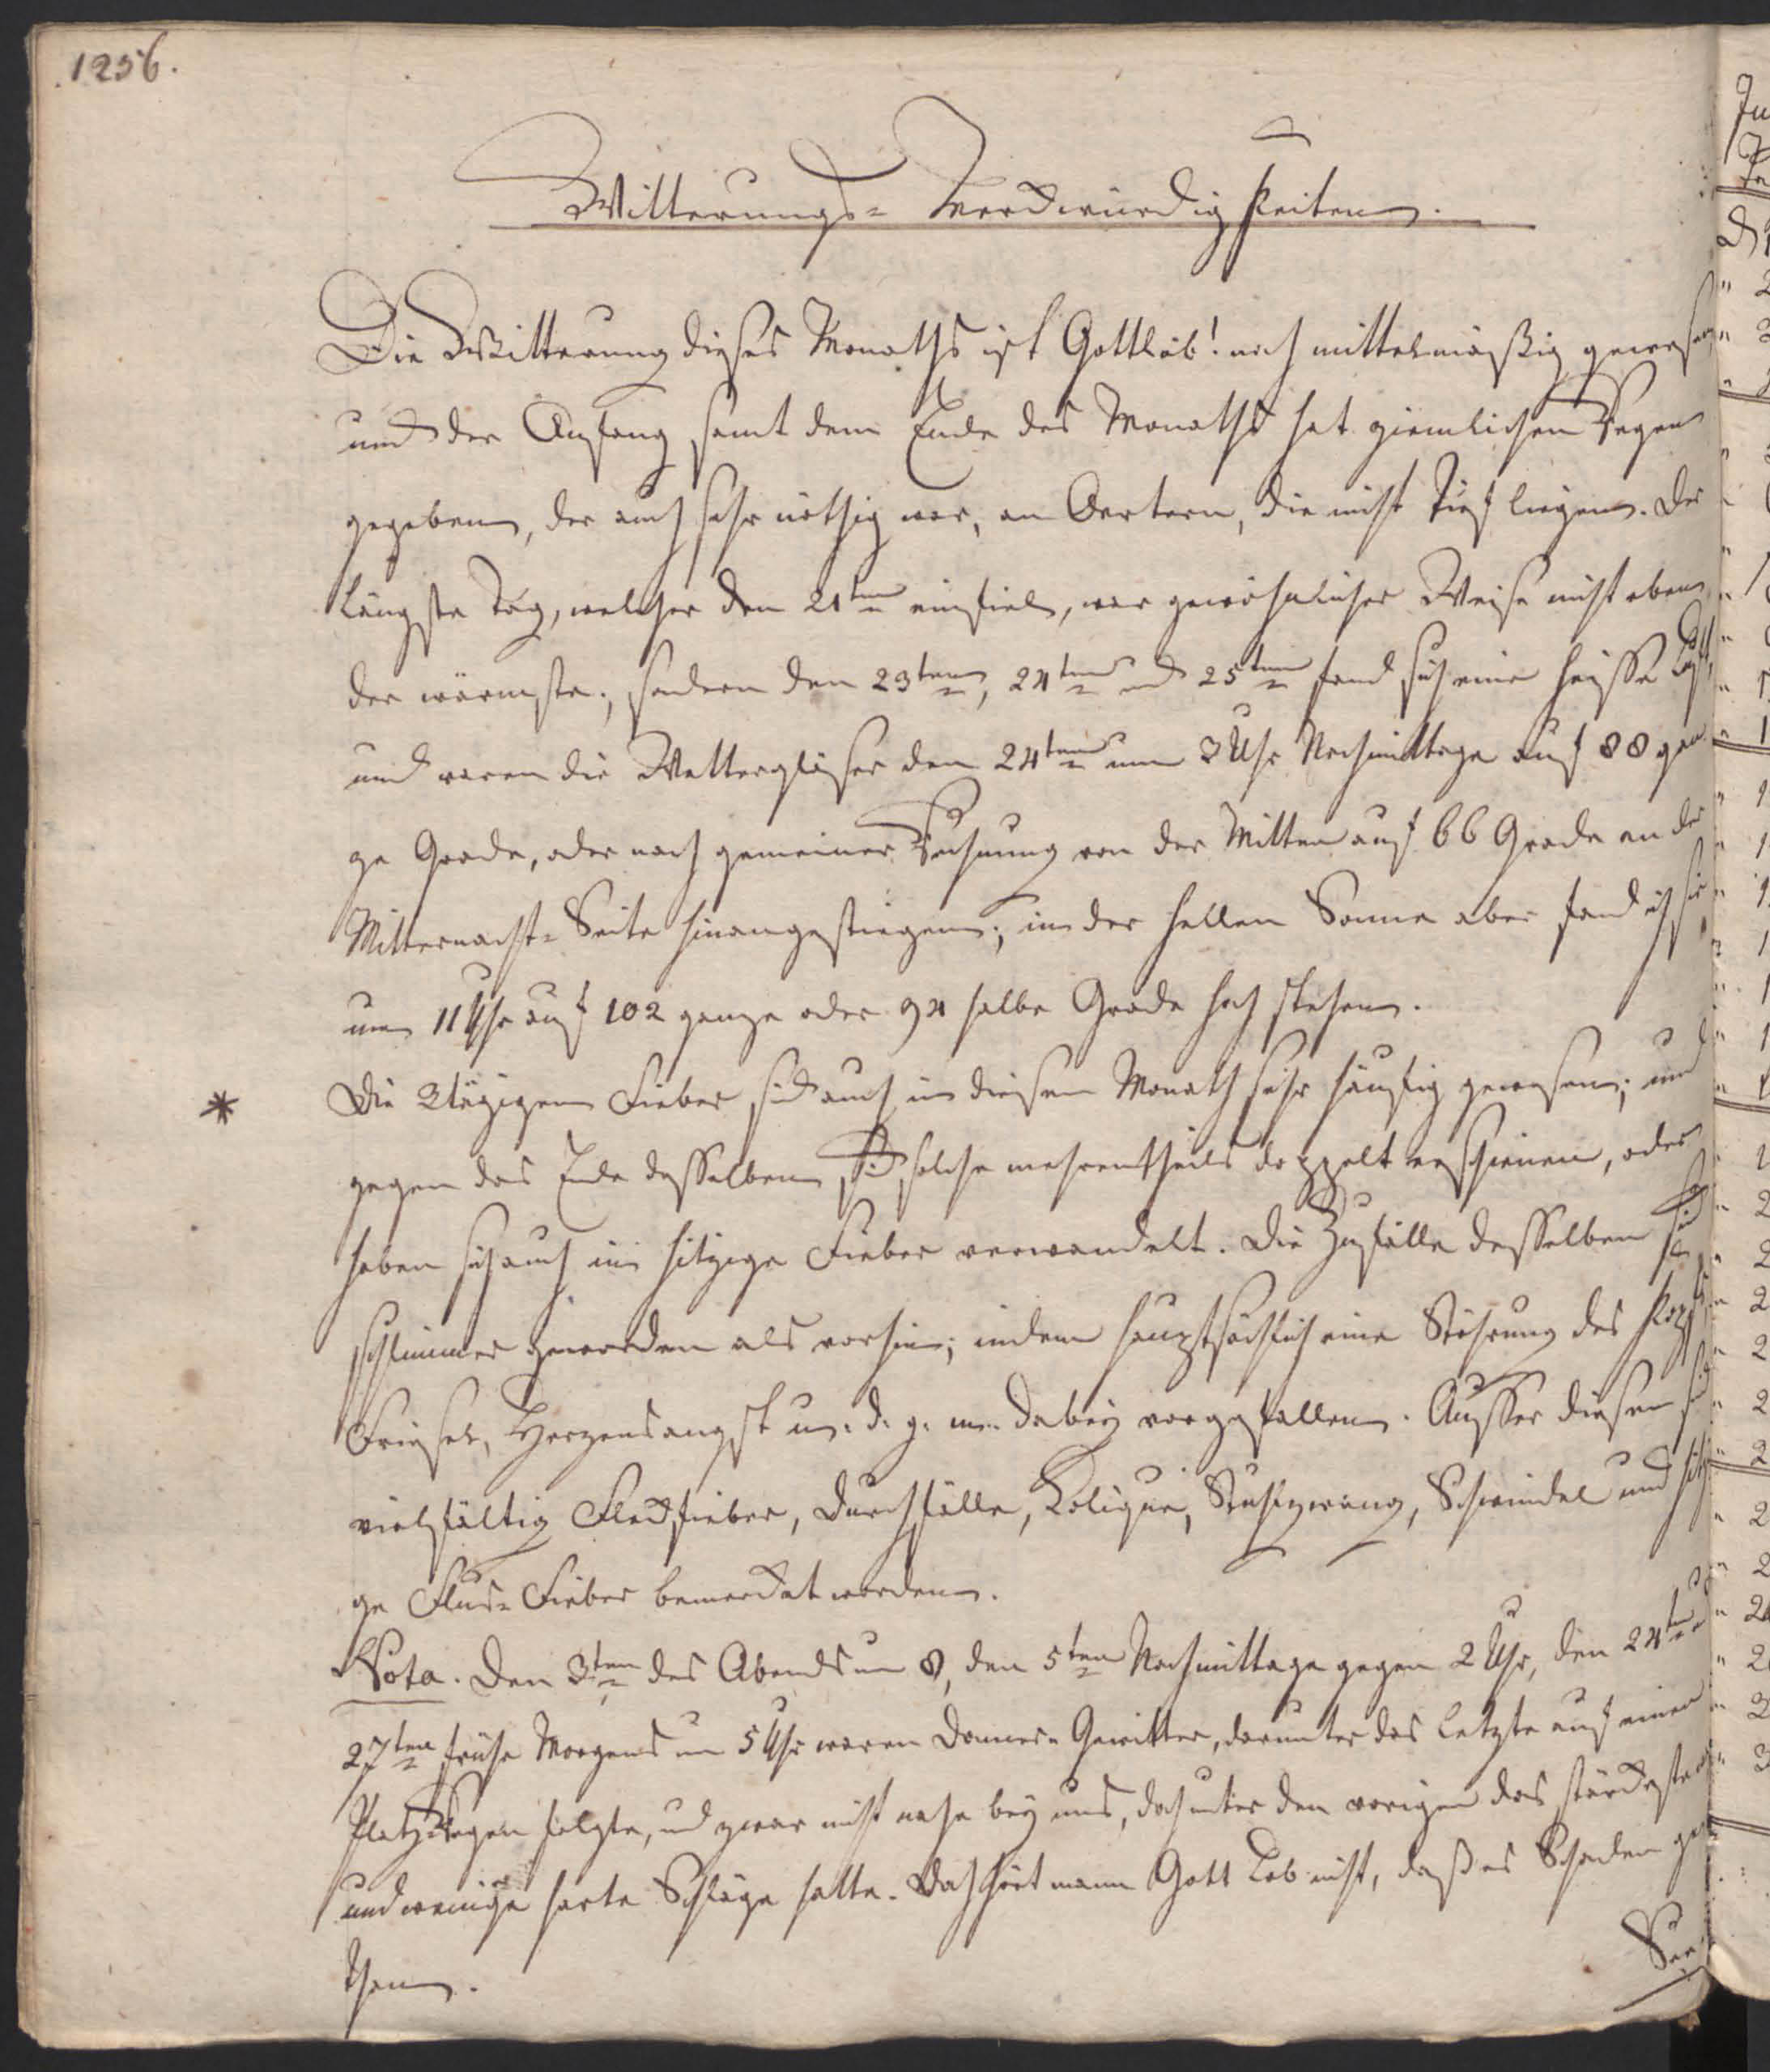 1256.
Witterungs- Merckwürdigkeiten.
Die Witterung dieses Monaths ist Gottlob! noch mittelmäßig gewesen
und der Anfang samt dem Ende des Monaths hat ziemlichen Regen
gegeben, der auch sehr nöthig war, an Oertern, die nicht tief liegen. Der
längste Tag, welcher den 21ten einfiel, war gewöhnlicher Weise nicht eben
der wärmste; sondern den 23ten, 24ten und 25ten fand sich eine heisse Luft
und waren die Wettergläser den 24ten um 3 Uhr Nachmittage auf 88 gan
ze Grade, oder nach gemeiner Rechnung von der Mitten auf 66 Grade an der
Mitternacht- Seite hinangestiegen; in der hellen Sonne aber fand ich sie
um 11 Uhr auf 102 ganze oder 94 halbe Grade hoch stehen.
* Die 3tägigen Fieber sind auch in diesem Monath sehr häufig gewesen; und
gegen das Ende desselben sind solche mehrentheils doppelt erschienen, oder
haben sich auch in hitzige Fieber verwandelt. Die Zufälle desselben sind
schlimmer geworden als vorhin; indem hauptsächlich eine Stöhrung des Kopfs,
Friesel, Herzensangst u. d. g. m. dabey vorgefallen. Ausser diesen sind
vielfältig Fleckfieber, Durchfälle, Colique, Stuhlzwang, Schwindel und hitzi
ge Flus- Fieber bemercket worden.
Nota. Den 3ten des Abends um 8, den 5ten Nachmittage gegen 2 Uhr, den 24ten und
27ten frühe Morgens um 5 Uhr waren Donner- Gewitter, darunter das letzte auf einen
Platzregen folgte, und zwar nicht nahe bey uns, doch unter den vorigen das stärckste
und wenige harte Schläge hatte. Doch hört mann Gott Lob nicht, daß es Schaden ge
than.